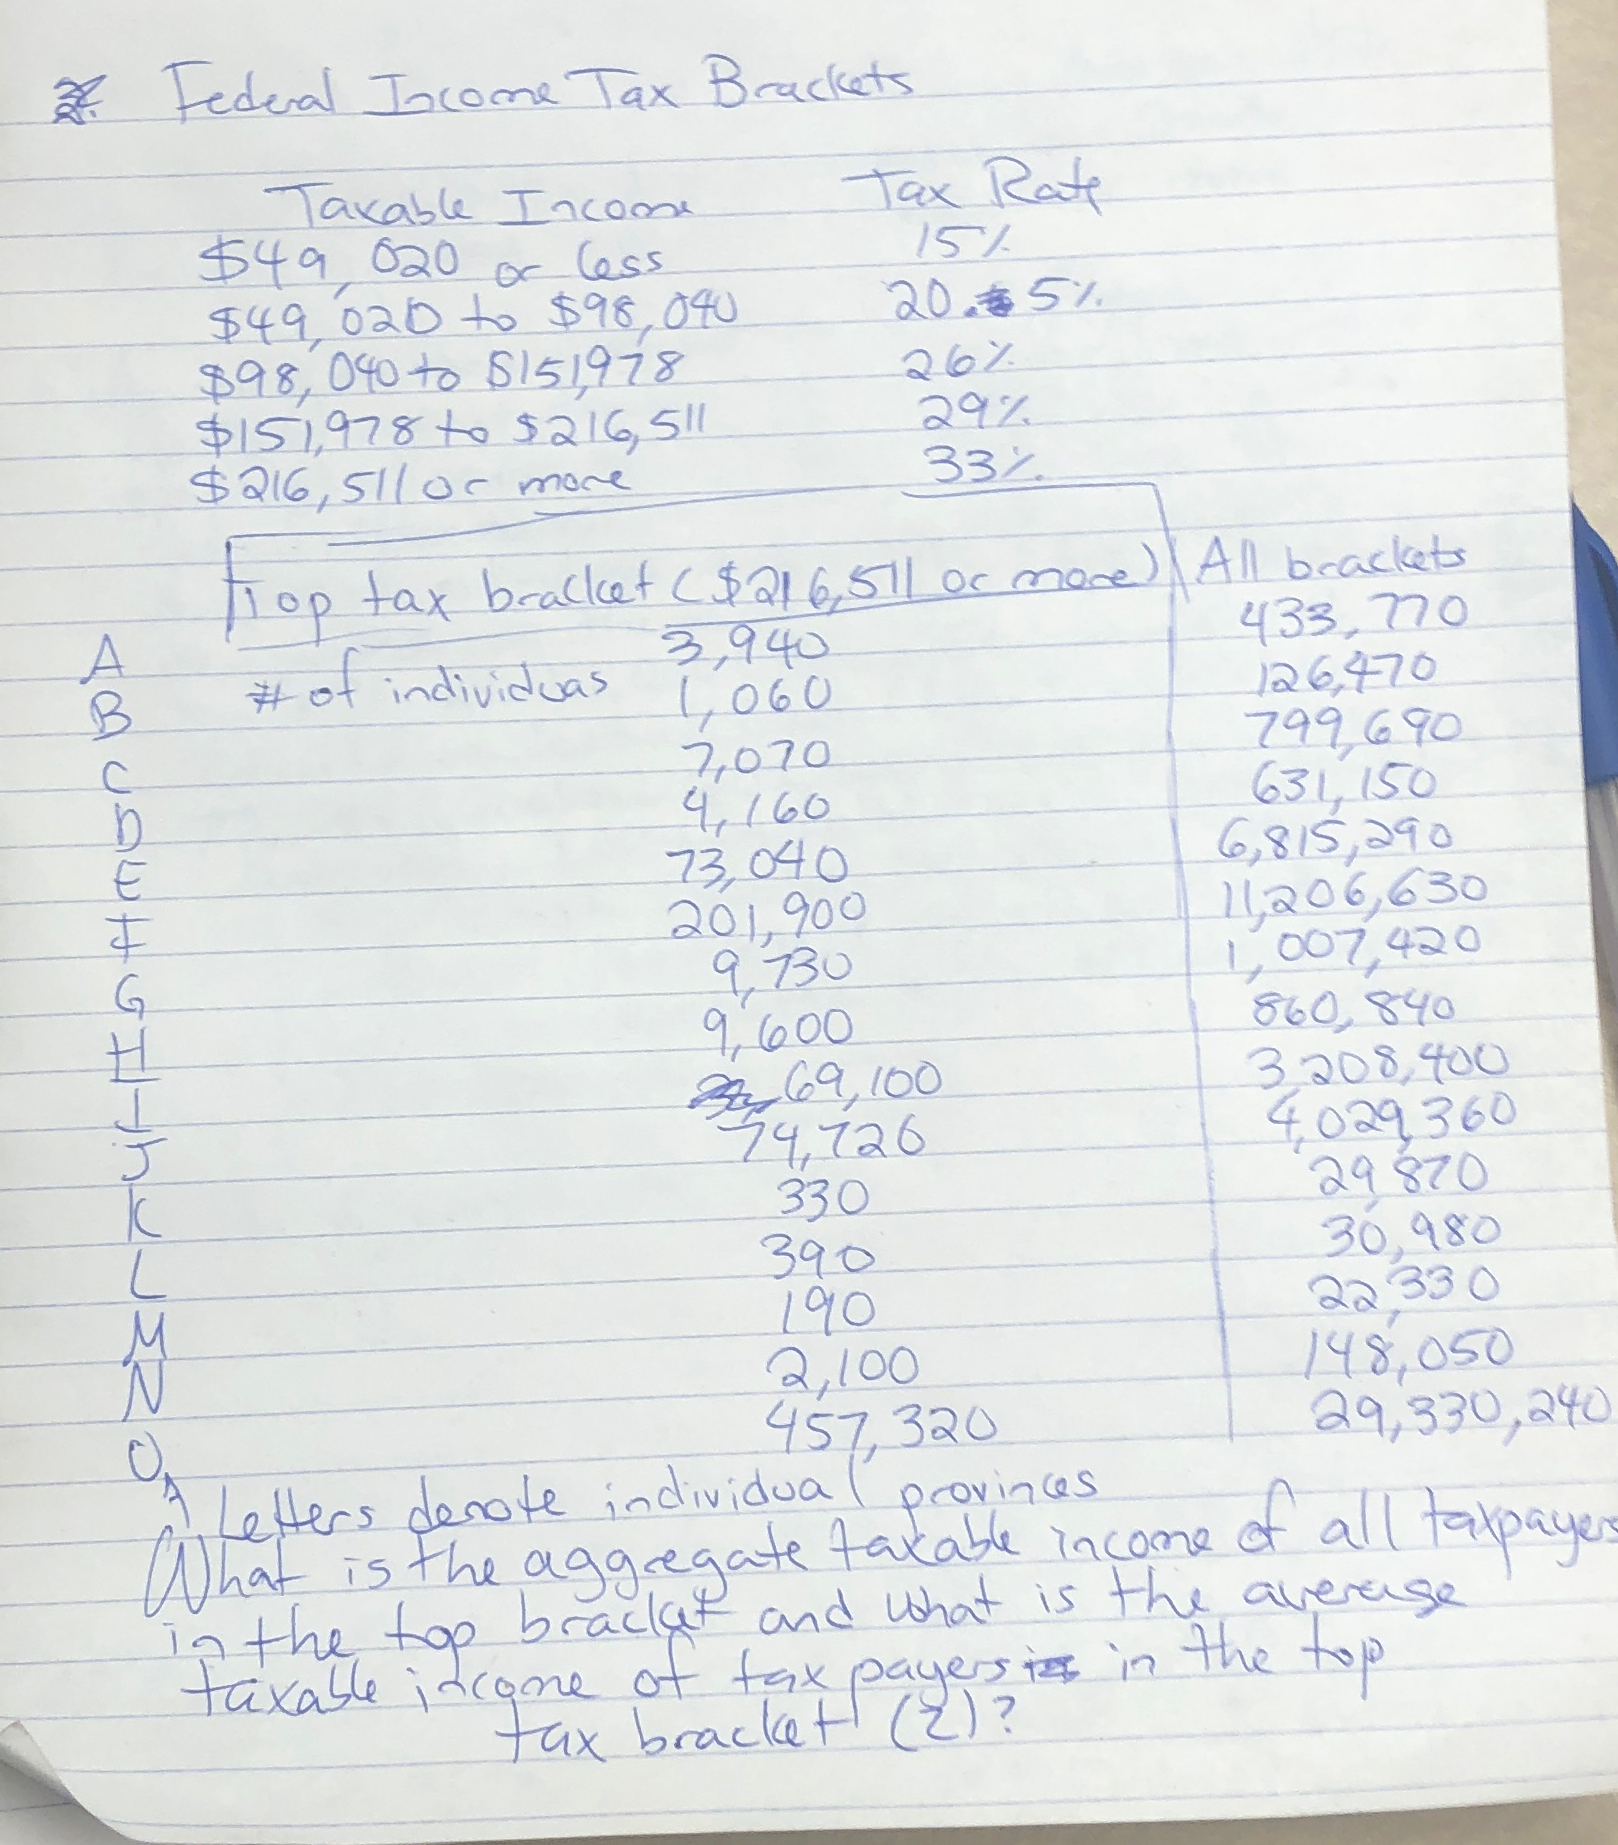 Federal Income Tax Brackets
Taxable Income Tax Rate
$49,020 or less 15%
$49,020 to $98,040 20.5%
$98,040 to $151,978 26%
$151,978 to $216,511 29%
$216,511 or more 33%
Top tax bracket ($216,511 or more) All brackets
A # of individuas 3,940 433,770
B 1,060 126,470
C 7,070 799,690
D 4,160 631,150
E 73,040 6,815,290
F 201,900 11,206,630
G 9,730 1,007,420
H 9,600 860,840
I 69,100 3,208,400
J 74,720 4,029,360
K 330 29,870
L 390 30,980
M 190 22,330
N 2,100 148,050
O 457,320 29,330,240
Letters denote individual provinces
What is the aggregate taxable income of all taxpayers
in the top bracket and what is the average
taxable income of tax payers in the top
tax bracket (z)?